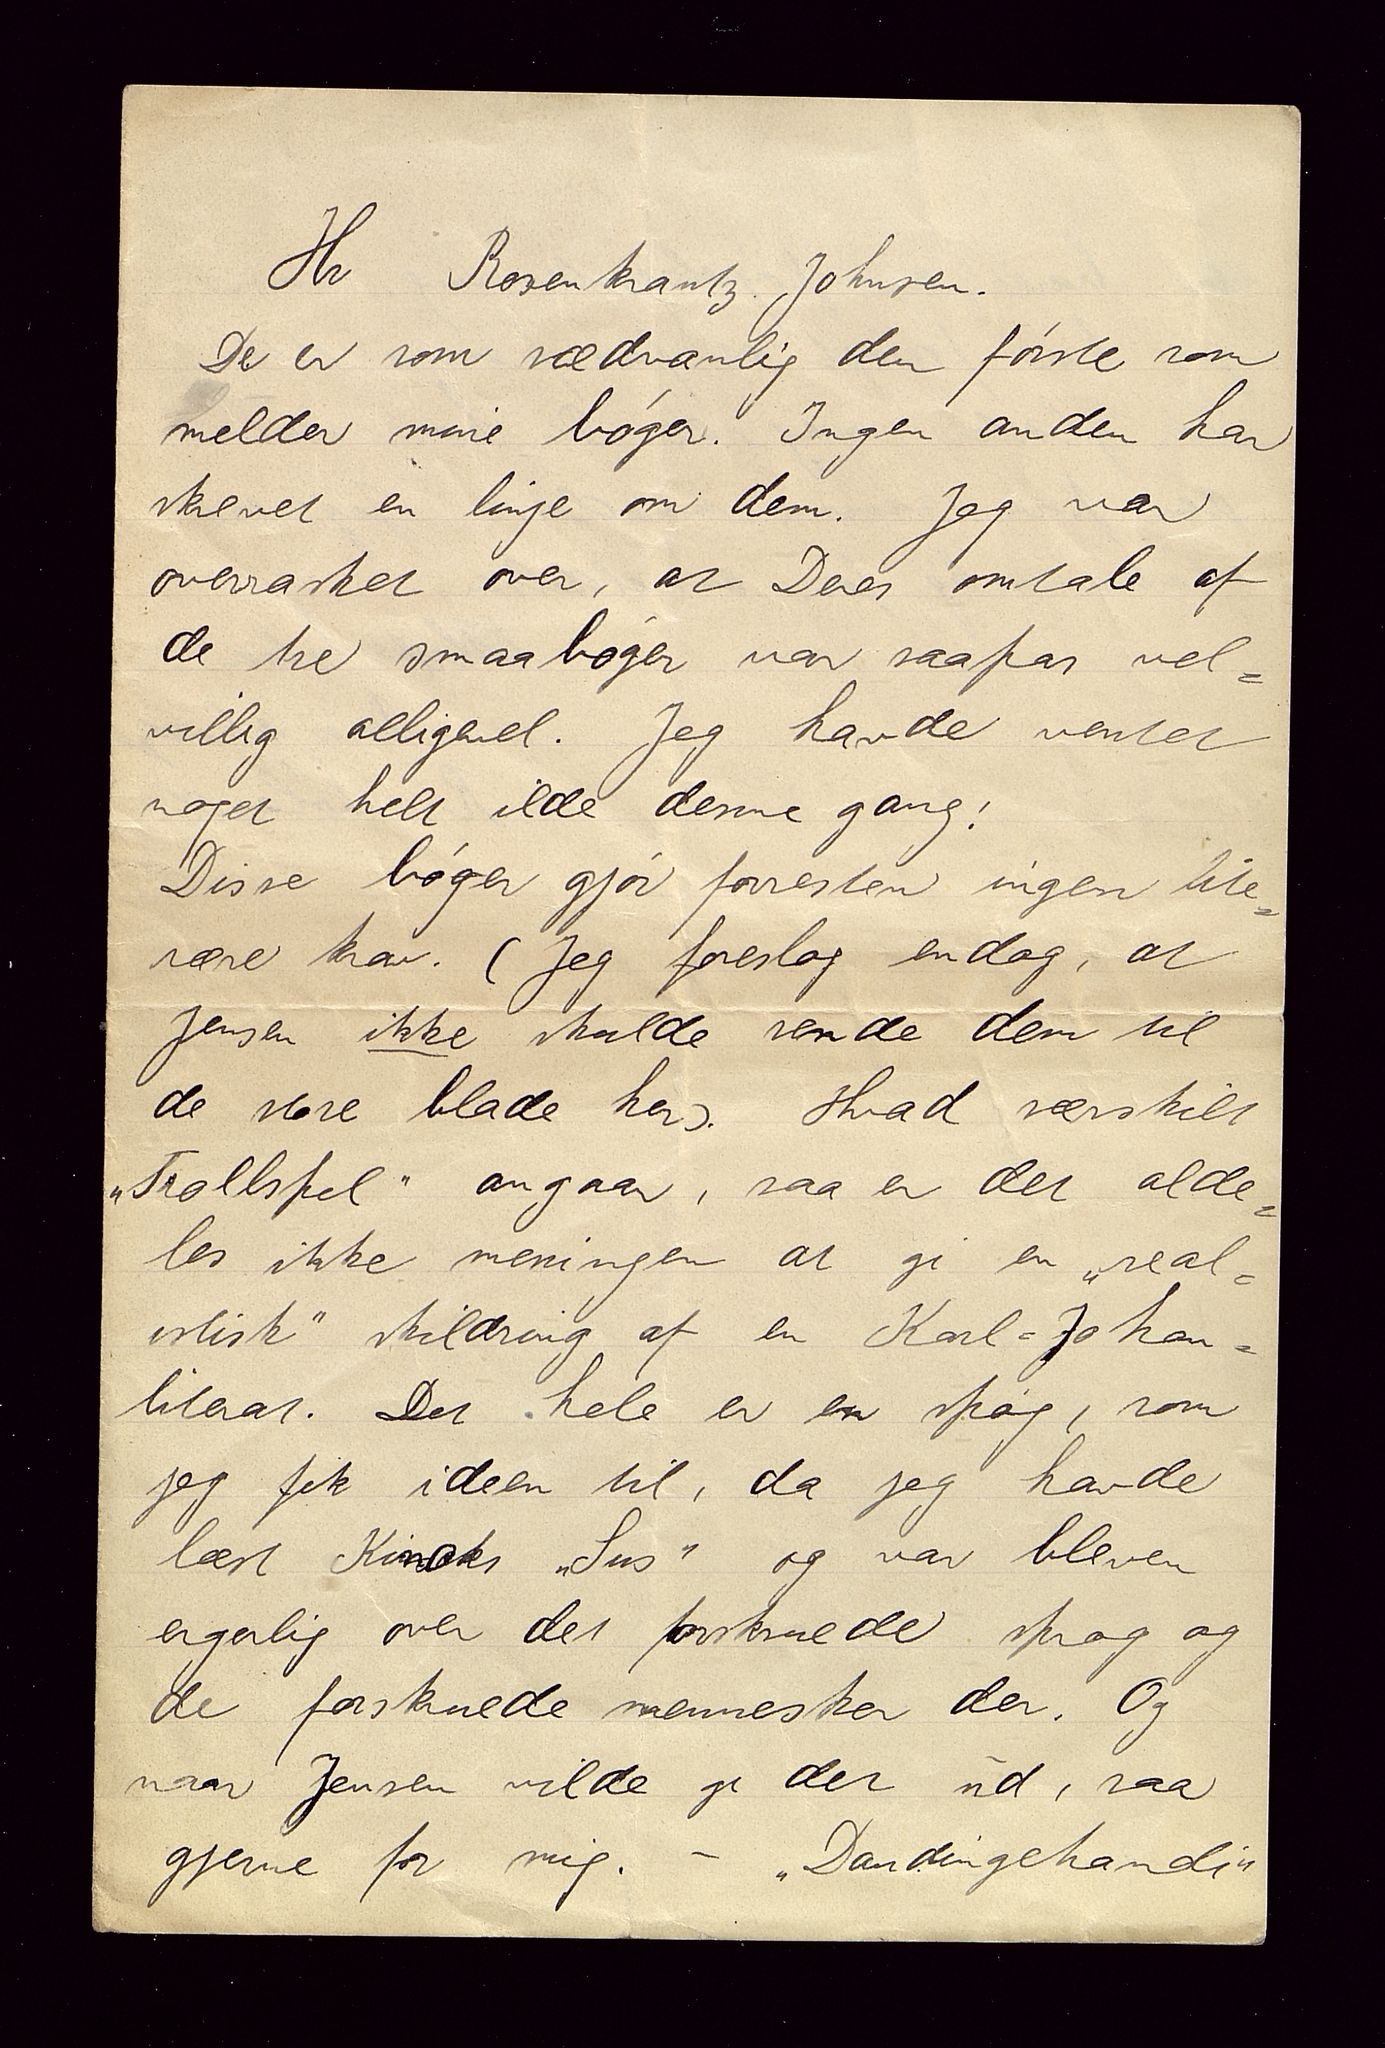 Hr Rosenkrantz Johnsen.
De er som sædvanlig den første som
melder mine bøger. Ingen anden har
skrevet en linje om dem. Jeg var
overrasket over, at Deres omtale af
de tre smaabøger var saapas vel=
villig alligevel. Jeg havde ventet
noget helt ilde denne gang!
Disse bøger gjør forresten ingen lite=
rære krav. (Jeg foreslog endog, at
Jensen ikke skulde sende dem til
de store blade her). Hvad særskilt
„Trollspel" angaar, saa er det alde=
les ikke meningen at gi en „real=
istisk" skildring af en Karl=Johan=
literat. Det hele er en spøg, som
jeg fik ideen til, da jeg havde
læst Kincks „Sus" og var bleven
ergerlig over det forskruede sprog og
de forskruede mennesker der. Og
naar Jensen vilde gi det ud, saa
gjerne for mig. – „Dardingehandi"